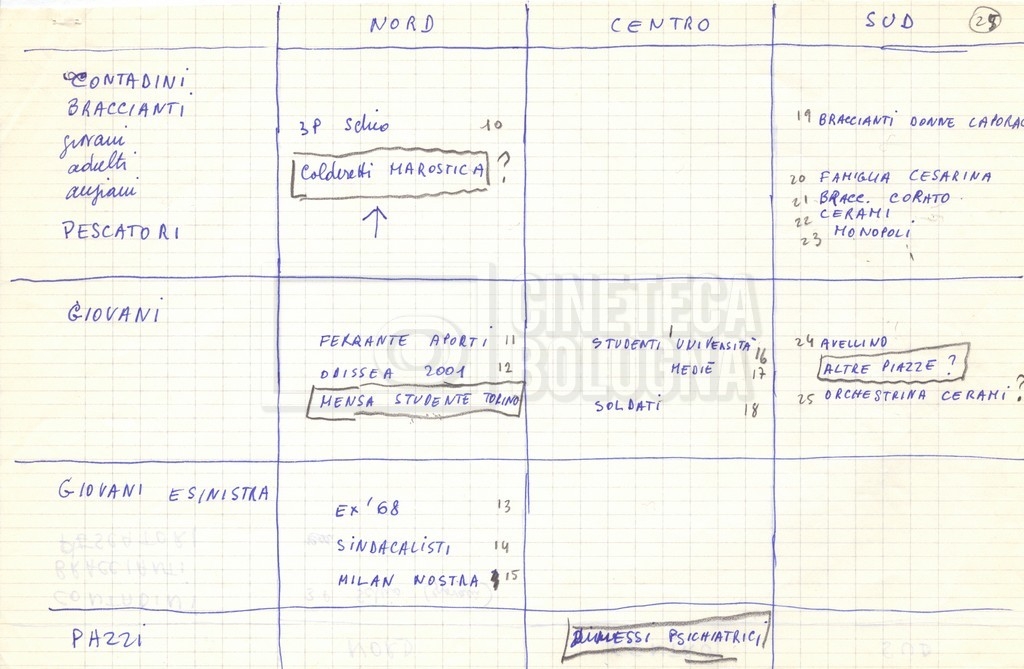 NORD CENTRO SUD 25
CONTADINI
BRACCIANTI
giovani
adulti
anziani
PESCATORI
3P Schio 10
Coldiretti MAROSTICA ?
19 BRACCIANTI DONNE CAPORAL
20 FAMIGLIA CESARINA
21 BRACC. CORATO
22 CERAMI
23 MONOPOLI
GIOVANI
FERRANTE APORTI 11
ODISSEA 2001 12
MENSA STUDENTE TORINO
STUDENTI UNIVERSITÀ 16
MEDIE 17
SOLDATI 18
24 AVELLINO
ALTRE PIAZZE ?
25 ORCHESTRINA CERAMI ?
GIOVANI E SINISTRA
EX '68 13
SINDACALISTI 14
MILAN NOSTRA 15
PAZZI
DIMESSI PSICHIATRICI
CINETECA
BOLOGNA